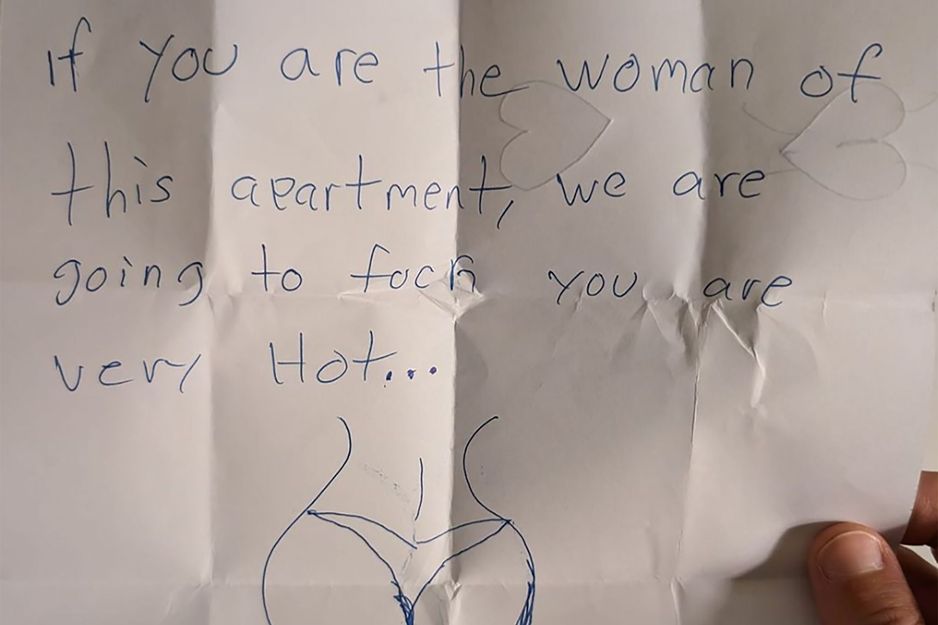 If you are the woman of
this apartment, we are
going to fock you are
very Hot...